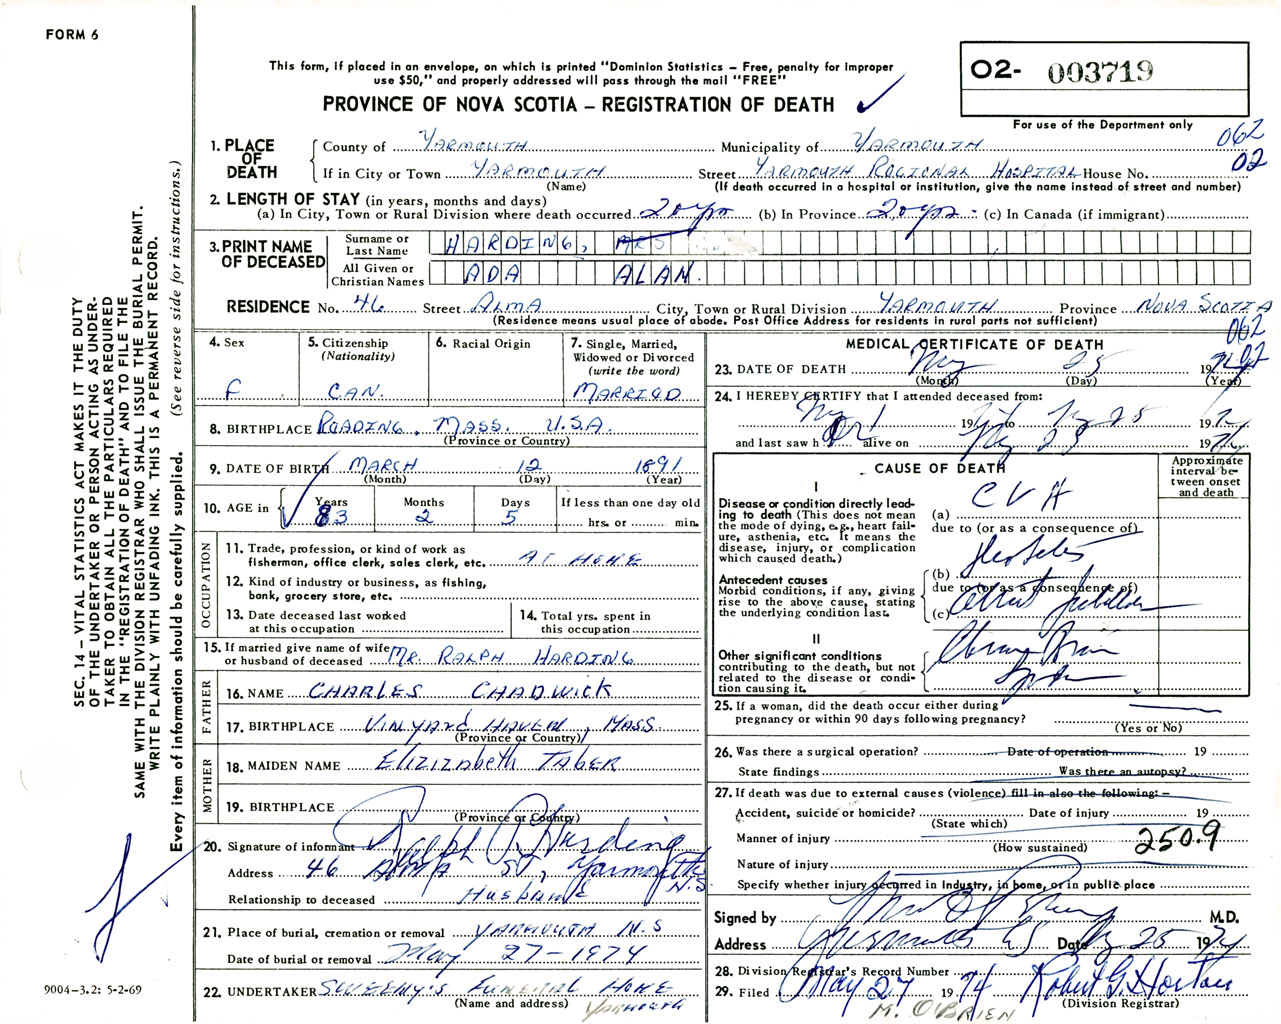 FORM 6
This form, if placed in an envelope, on which is printed "Dominion Statistics – Free, penalty for improper
use $50," and properly addressed will pass through the mail "FREE"
PROVINCE OF NOVA SCOTIA – REGISTRATION OF DEATH
02- 003719
For use of the Department only
062
02
1. PLACE OF DEATH
County of YARMOUTH Municipality of YARMOUTH
If in City or Town YARMOUTH Street YARMOUTH REGIONAL HOSPITAL House No.
(Name) (If death occurred in a hospital or institution, give the name instead of street and number)
2. LENGTH OF STAY (in years, months and days)
(a) In City, Town or Rural Division where death occurred 20 yrs (b) In Province 20 yrs. (c) In Canada (if immigrant)
3. PRINT NAME OF DECEASED
Surname or Last Name HARDING, MRS
All Given or Christian Names ADA ALAN.
RESIDENCE No. 46 Street ALMA City, Town or Rural Division YARMOUTH Province NOVA SCOTIA
(Residence means usual place of abode. Post Office Address for residents in rural parts not sufficient)
062
02
4. Sex F
5. Citizenship (Nationality) CAN.
6. Racial Origin
7. Single, Married, Widowed or Divorced (write the word) MARRIED
8. BIRTHPLACE READING, MASS. U.S.A.
(Province or Country)
9. DATE OF BIRTH MARCH 12 1891
(Month) (Day) (Year)
10. AGE in Years 83 Months 2 Days 5 If less than one day old hrs. or min.
OCCUPATION
11. Trade, profession, or kind of work as fisherman, office clerk, sales clerk, etc. AT HOME
12. Kind of industry or business, as fishing, bank, grocery store, etc.
13. Date deceased last worked at this occupation
14. Total yrs. spent in this occupation
15. If married give name of wife or husband of deceased MR. RALPH HARDING
FATHER
16. NAME CHARLES CHADWICK
17. BIRTHPLACE VINYARD HAVEN, MASS
(Province or Country)
MOTHER
18. MAIDEN NAME ElizizAbeth TABER
19. BIRTHPLACE
(Province or Country)
20. Signature of informant Ralph P. Harding
Address 46 ALMA ST, Yarmouth N.S
Relationship to deceased HUSBAND
21. Place of burial, cremation or removal YARMOUTH N.S
Date of burial or removal May 27-1974
22. UNDERTAKER SWEENY'S FUNERAL HOME
(Name and address) YARMOUTH
MEDICAL CERTIFICATE OF DEATH
23. DATE OF DEATH May 25 1974
(Month) (Day) (Year)
24. I HEREBY CERTIFY that I attended deceased from:
May 1 1974 to My 25 1974
and last saw her alive on May 25 1974
CAUSE OF DEATH
Approximate interval between onset and death
I
Disease or condition directly leading to death (This does not mean the mode of dying, e.g., heart failure, asthenia, etc. It means the disease, injury, or complication which caused death.)
(a) CVA
due to (or as a consequence of)
Antecedent causes
Morbid conditions, if any, giving rise to the above cause, stating the underlying condition last.
(b)
due to (or as a consequence of)
(c)
II
Other significant conditions contributing to the death, but not related to the disease or condition causing it.
Chronic Brain
25. If a woman, did the death occur either during pregnancy or within 90 days following pregnancy?
(Yes or No)
26. Was there a surgical operation? Date of operation 19
State findings Was there an autopsy?
27. If death was due to external causes (violence) fill in also the following: –
Accident, suicide or homicide? Date of injury 19
(State which)
Manner of injury 250.9
(How sustained)
Nature of injury
Specify whether injury occurred in industry, in home, or in public place
Signed by M.D.
Address Yarmouth NS Date My 25 1974
28. Division Registrar's Record Number
29. Filed May 27 1974 Robert G. Horton
(Division Registrar)
M. O'BRIEN
SEC. 14 – VITAL STATISTICS ACT MAKES IT THE DUTY
OF THE UNDERTAKER OR PERSON ACTING AS UNDER-
TAKER TO OBTAIN ALL THE PARTICULARS REQUIRED
IN THE "REGISTRATION OF DEATH" AND TO FILE THE
SAME WITH THE DIVISION REGISTRAR WHO SHALL ISSUE THE BURIAL PERMIT.
WRITE PLAINLY WITH UNFADING INK. THIS IS A PERMANENT RECORD.
Every item of information should be carefully supplied. (See reverse side for instructions.)
9004-3.2: 5-2-69